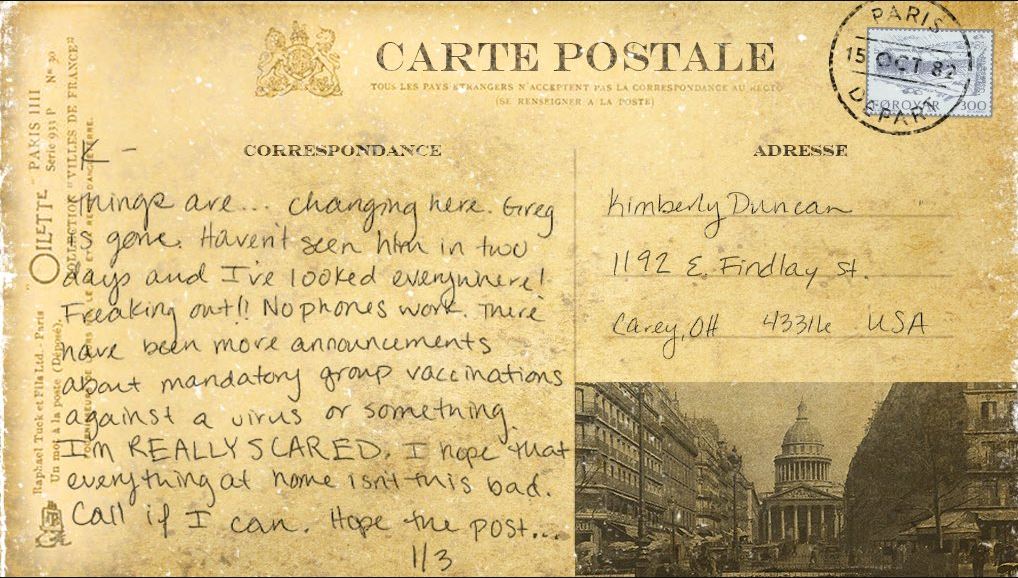 CARTE POSTALE
TOUS LES PAYS ETRANGERS N'ACCEPTENT PAS LA CORRESPONDANCE AU RECTO
(SE RENSEIGNER A LA POSTE)
PARIS
15 OCT 82
DEPART
FØROYAR 300
"OILETTE" PARIS IIII
Serie 933 P Nº 30
COLLECTION "VILLES DE FRANCE"
Raphael Tuck et Fils Ltd. - Paris
Un mot à la poste (Déposé).
CORRESPONDANCE
K -
Things are... changing here. Greg
is gone. Haven't seen him in two
days and I've looked everywhere!
Freaking out!! No phones work. There
have been more announcements
about mandatory group vaccinations
against a virus or something.
I'm REALLY SCARED. I hope that
everything at home isn't this bad.
Call if I can. Hope the post...
1/3
ADRESSE
Kimberly Duncan
1192 E. Findlay St.
Carey, OH 43316 USA